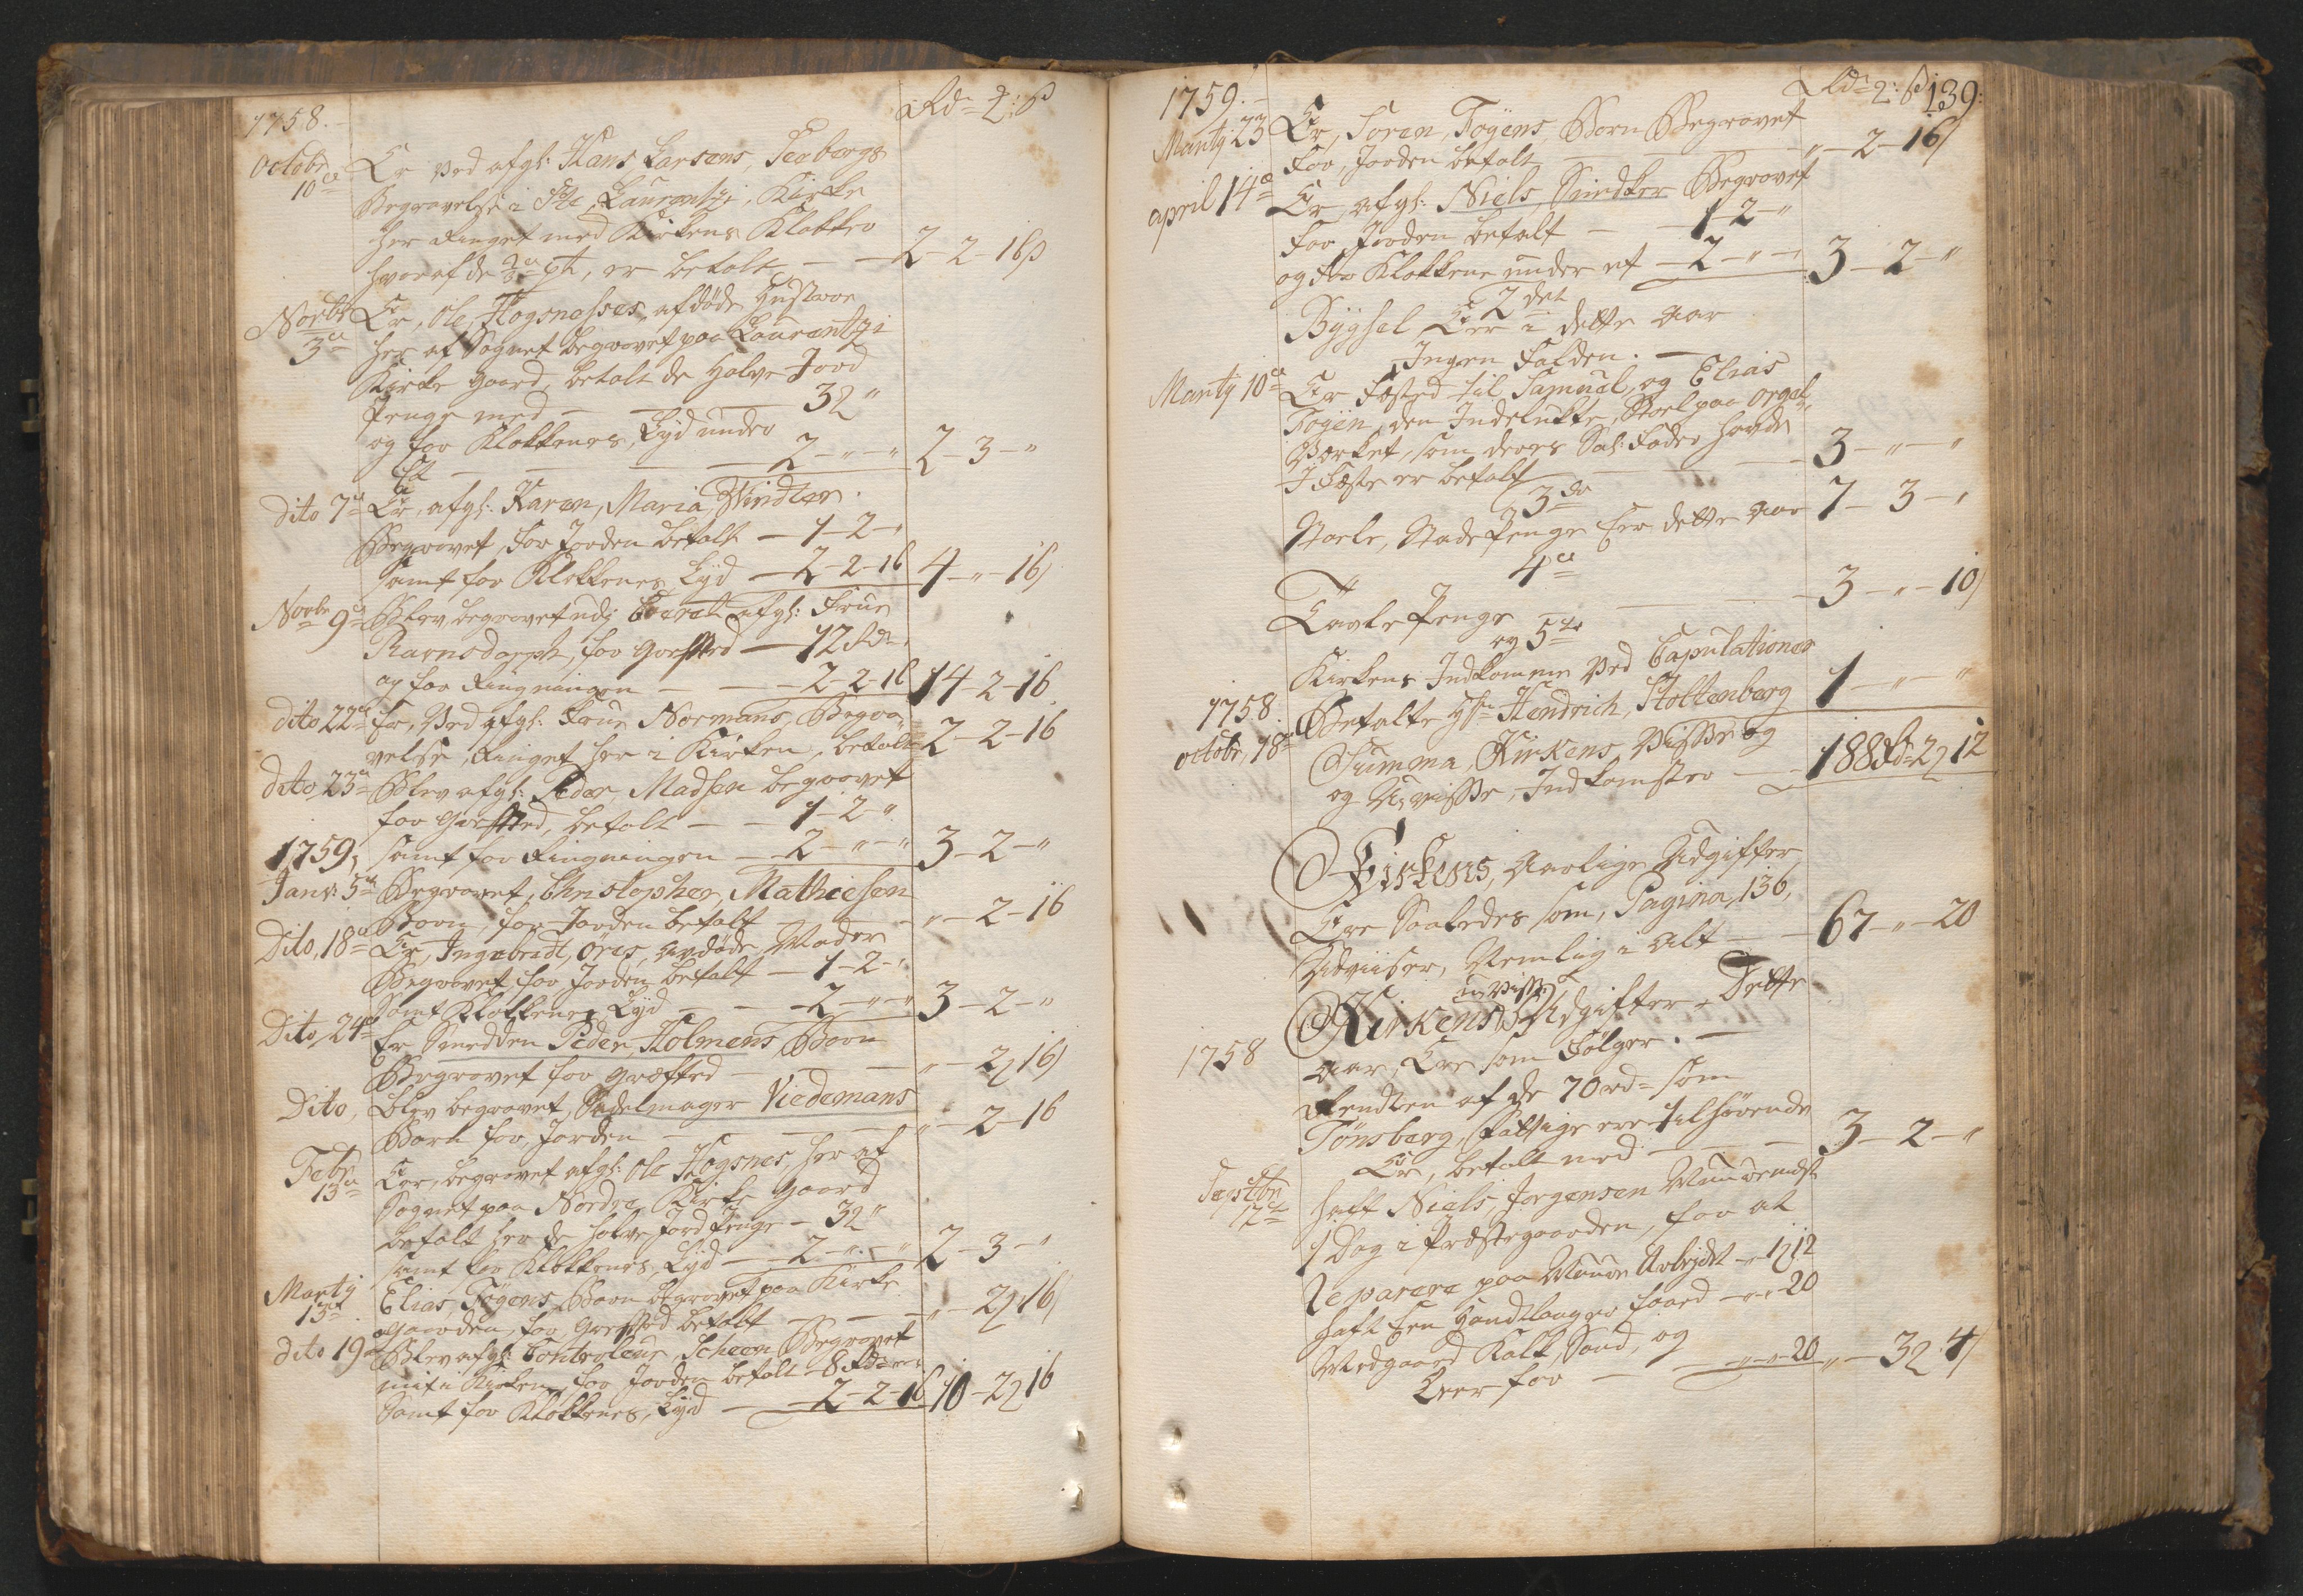 1758.
Rd 2: ß
Octobr 10de Er ved afgl: Hans Larsens, Seebergs
Begravelse i Ste Laurentzi, Kirke
her Ringet med Kirkens Klokker
hvoraf de er betalt — 2-2-16ß
Novbr 3de Er, Ole, Hogsnesses, afdøde Hustroe
her af Sognet begravet paa Laurentzi
Kirke gaard, betalt de halve Jord
Penge med — 3 "
og for Klokkernes, Lyd under
Et — 2-"-" 2-3-"
dito 7de Er, afgl: Karen, Maria, Windter
Begravet, for Jorden betalt — 1-2-"
samt for Klokkenes Lyd — 2-2-16 4-"-16
Novbr 9de Blev begravet udj Coeret afgl: Frue
Ravnsdorph, for græfsted — 12 Rdr
og for Ringningen — 2-2-16 14-2-16
dito 22de Er, Ved afgl: Frue Normans, Begra-
velse, Ringet her i Kirken, betalt 2-2-16
dito 23de Blev afgl: Peder, Madsen begravet
for græfsted, betalt — 1-2-"
1759, samt for Ringningen — 2-"-" 3-2-"
Janv: 5te Begravet, Christopher, Mathiesen
Barn, for Jorden betalt — "-2-16
Dito, 18de Er, Ingebrecht, Ores, avdøde, Moder
Begravet, for Jorden betalt — 1-2-"
Samt Klokkenes Lyd — 2-"-" 3-2-"
Dito, 24de Er Smedden Peder, Holmens Barn
Begravet for græfsted — "-2-16
Dito, blev begravet, Sadelmager Viedemans
Barn for, Jorden — "-2-16
Febr 13de Er, begravet afgl: Ole Hogsnes, her af
Sognet paa Nordre Kirke gaard
betalt her de halve Jord Penge — 3 "
samt for Klokkenes, Lyd — 2-"-" 2-3-"
Marty 13de Elias, Foyens Barn begravet paa Kirke
gaarden, for, græfsted betalt — "-2-16
dito 19de Blev afgl: Controleur, Scheen Begravet
mit i Kirken, for Jorden betalt — 8 Rd
Samt for Klokkenes, Lyd — 2-2-16 10-2-16
1759.
Rdr 2: ß 139:
Marty: 23 Er, Soren, Foyens, Barn Begravet
For, Jorden betalt — "-2-16
april 14de Er, afgl: Niels, Snedker Begravet
For Jorden betalt — 1-2-"
og for Klokkerne under et — 2-"-" 3-2-"
2det
Bygsel Eer i dette Aar
Ingen Falden. —
Marty 10de Er Fæsted til Samuel, og Elias
Foyen, den Indelukte, Stoel paa Orgel-
Værket, som deres Sal: Fader havde
I Fæste er betalt — 3-"-"
3die
Stoele, Stade Penge Er dette Aar 7-3-"
4de
Tavle Penge — 3-"-10
og 5te
Kirkens Indkomme Ved Copulationer
1758.
octobr, 18de Betalte Hendrich, Stoltenberg 1-"-"
Summa, Kirkens, Visse og
og Uvisse, Indkomster — 188 Rd 2 12
Kirkens, Aarlige Udgifter,
Ere Saaledes som, Pagina, 136,
Udviiser, Nemlig i Alt — 67-"-20
Kirkens uvisse Udgifter Dette
1758 Aar, Ere som Følger. —
Renten af de 70 rd som
Tönsberg, fattige ere tilhörende
Er, betalt med — 3-2-"
Septbr 12te haft Niels, Jörgensen Muurmest
1 Dag i Præstegaarden, for at
Reparere paa Muur Arbejdet — 1 12
haft Een Handlanger fored — " " 20
Medgaaed Kalk, Sand, og
Leer for — "-"-20 "-3 4